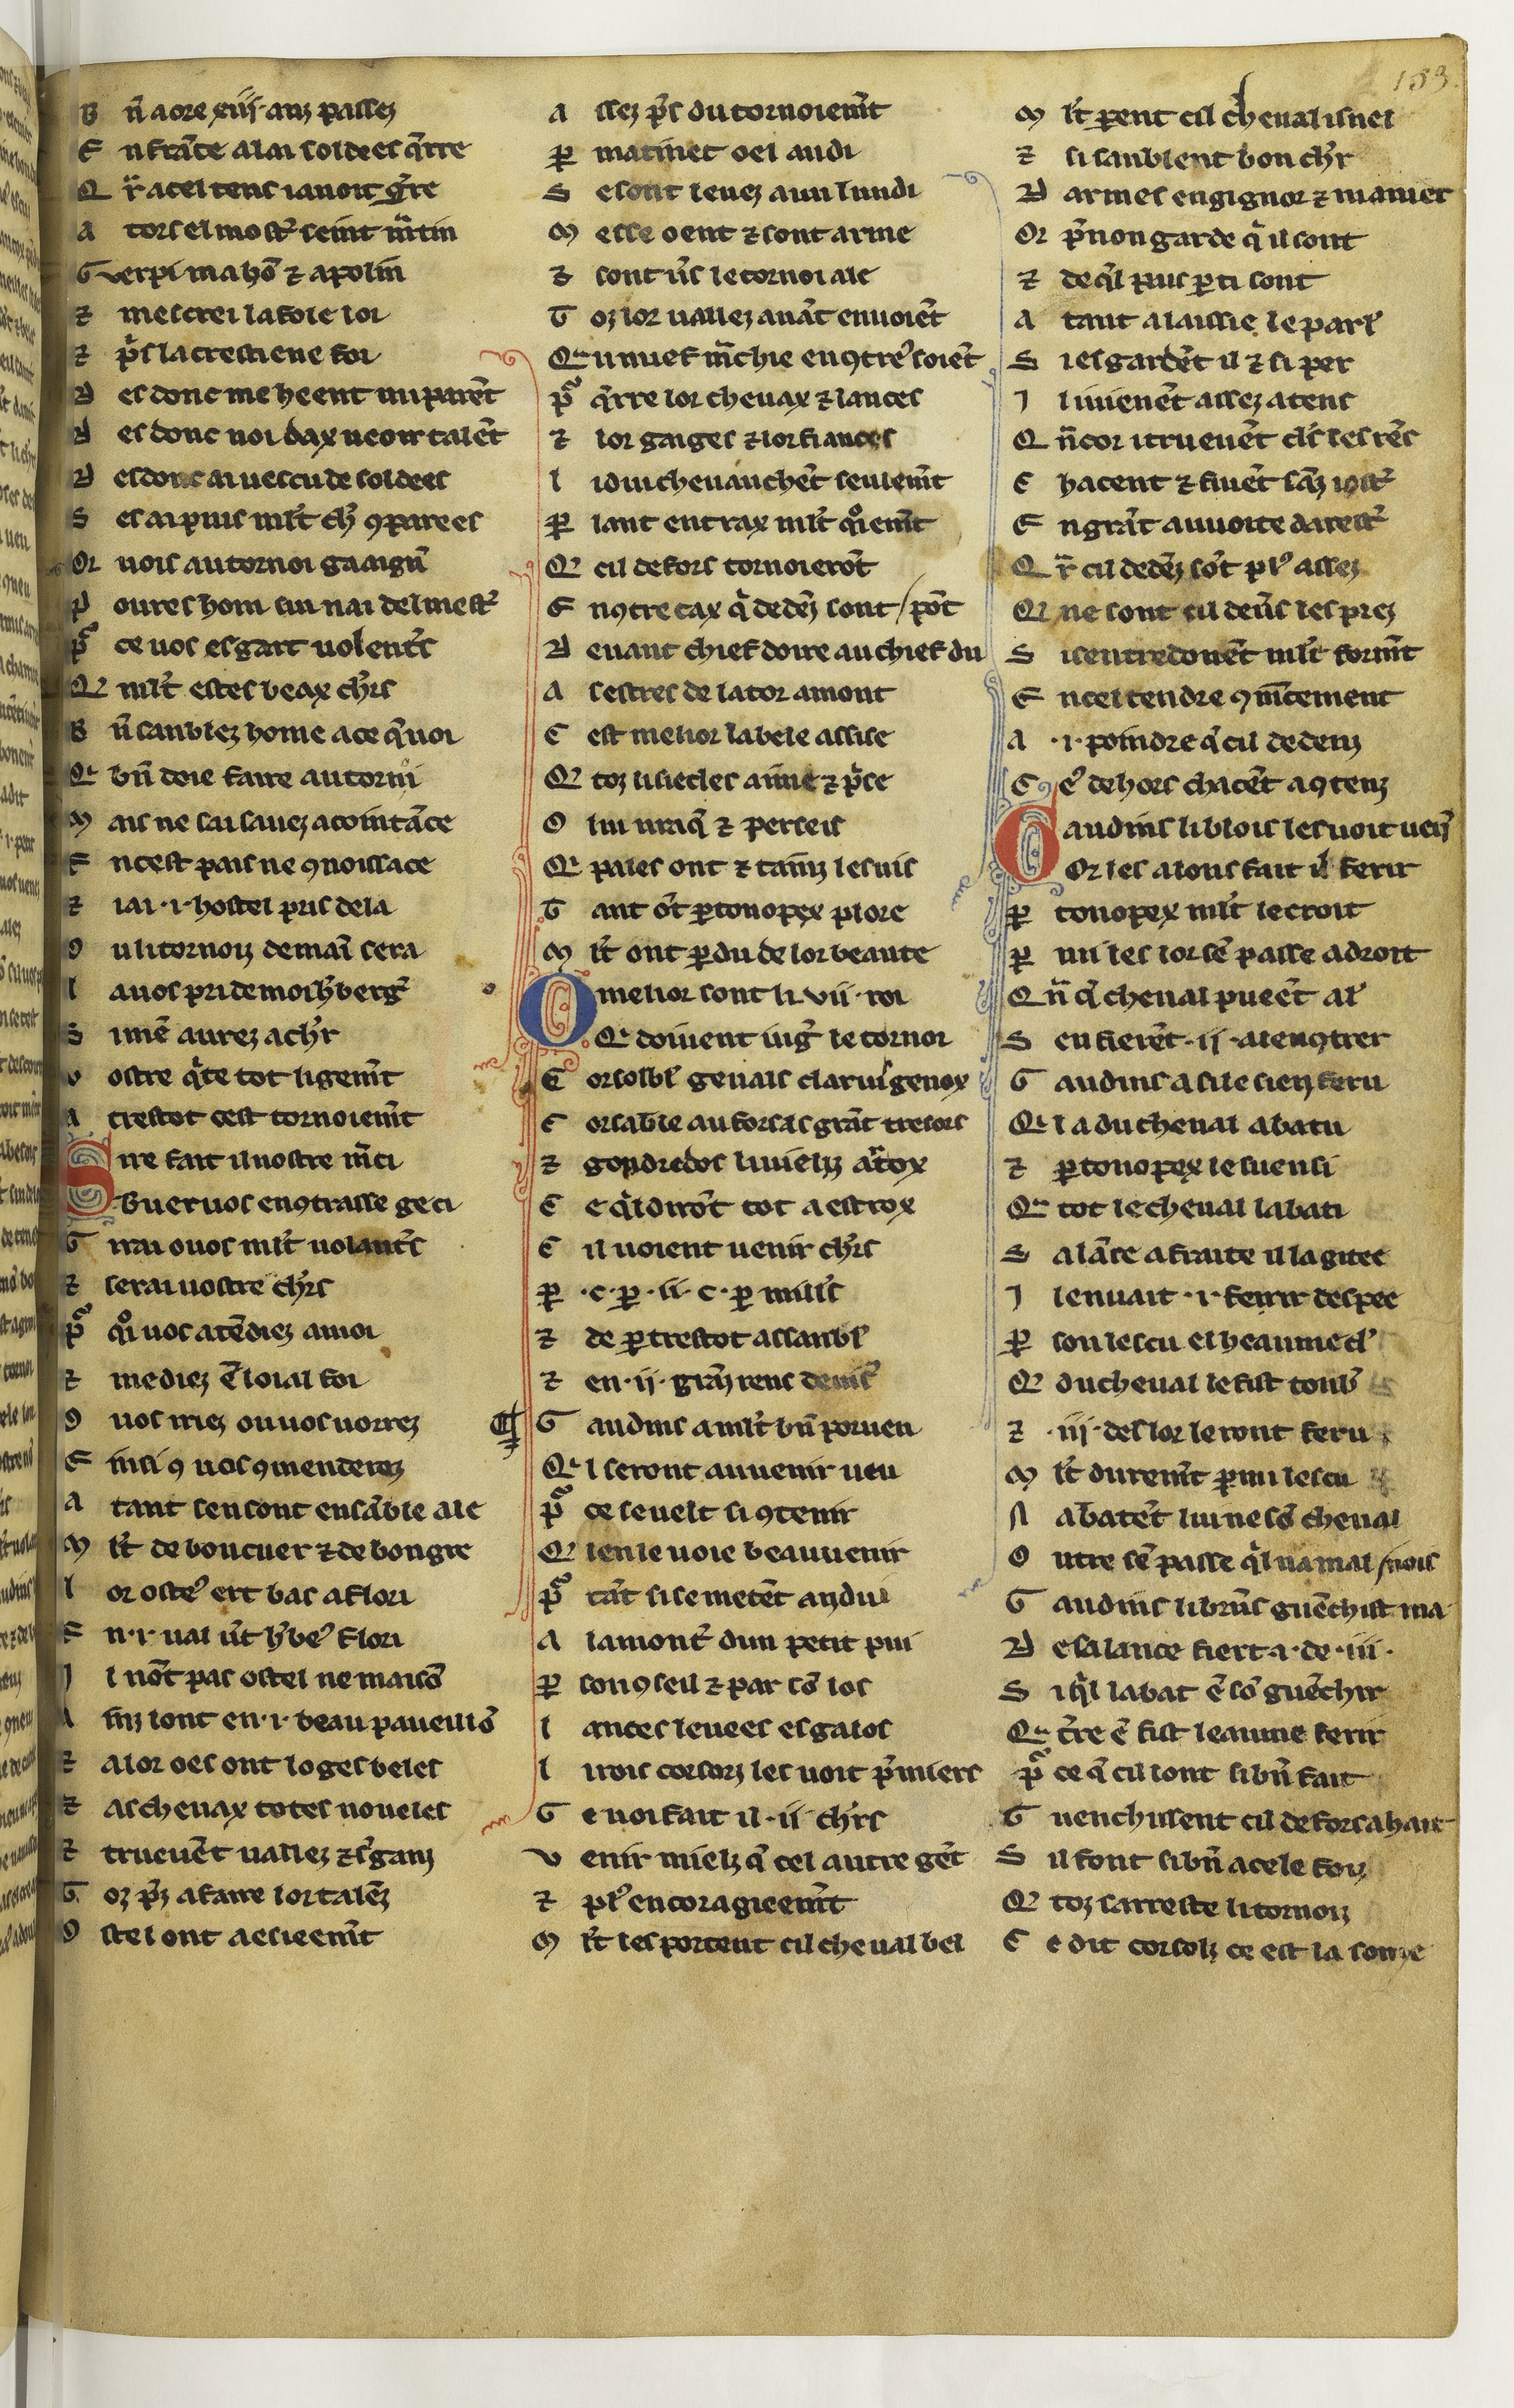 153
B n̄ a ore xiiij· anz passez
E n france alai soldees q̄rre
Q r̄ a cel tens i avoit gr̄re
A tors el most᷑ seint m̄tin
G uerpi mahō ⁊ apolin
⁊ mescrei la fole loi
⁊ pͥs la crestiene foi
D es donc me heent mi parēt
D es donc noi dax ueoir talēt
D es donc ai uescu de soldees
S es ai puis ml̄t ch᷑ ꝯparees
Or uois au tornoi gaaign᷑
P oures hom sui nai del mest᷑
pͣ ce uos esgart uolent᷑s
Q ml̄t estes beax ch᷑rs
B n̄ sanblez home a ce q̄ uoi
Q bn̄ doie faire au tornoi
M ais ne sai sauez acointāce
E n cest pais ne ꝯnoissāce
⁊ iai ·i· hostel pris dela
O u li tornoiz demaī sera
L a uos pri de moi h᷑berg᷑
S i men̄ aurez a ch᷑r
V ostre qͥte tot ligem̄t
A trestot cest tornoiem̄t
Sire fait il uostre m᷑ci
B uer uos enꝯtrasse ge ci
G irai o uos ml̄t uolant᷑s
⁊ serai uostre ch᷑rs
pͣ qͦi uos atēdiez a moi
⁊ me diez ē loial foi
O uos iriez ou uos uorrez
E insi ꝯ uos ꝯmenderez
A tant sen sont ensāble ale
M l̄t de bon cuer ⁊ de bon gre
L or ostel᷑ ert bas a flori
E n ·i· ual u᷑t h᷑be᷑ flori
I l nōt pas ostel ne maisō
A inz sont en ·i· beau paueillō
⁊ a lor oes ont loges beles
⁊ as cheuax totes noueles
⁊ trueuēt uallez ⁊ s᷑ganz
G oz p᷑z a faire lor talēz
O stel ont aesieem̄t
A ssez p᷑s du tornoiem̄t
ꝑ matinet oel audi
S e sont leuez a un lundi
M esse oent ⁊ sont arme
⁊ sont u᷑s le tornoi ale
T oz lor uallez auāt enuoiēt
Q uil nuef m̄chie enꝯtre᷑ soiēt
pͣ q̄rre lor cheuax ⁊ lances
⁊ lor gaiges ⁊ lor fiances
L i dui cheuauchēt seulem̄t
ꝑ lant entrax ml̄t qͦiem̄t
Q cil defors tornoierōt
E nꝯtre cax qͥ dedēz sont / pōt
D euant chief doire au chief du
A s estres de la tor amont
C est melior la bele assise
Q toz li siecles aime ⁊ pͥse
O lui uraq̄ ⁊ perseis
Q pales ont ⁊ tainz les uis
T ant ōt ꝑtonopex plore
M l̄t ont ꝑdu de lor beaute
O melior sont li vii· roi
Q doiuent iug᷑ le tornoi
C orsolbl᷑ geuais clarui᷑ genox
C orsable au fors as grāt tresors
⁊ gondredes li uielz a᷑tox
C e qͥl dirōt tot a estrox
C il uoient uenir ch᷑rs
ꝑ ·c· ꝑ ·ii· c· ꝑ mill᷑s
⁊ de ꝑtrestot assanbl᷑
⁊ en ·ij· granz rens deuis᷑
G audins a ml̄t bn̄ porueu
Q l seront au uenir ueu
pͣ ce se uelt si ꝯtenir
Q len le uoie beau uenir
pͣ tāt si se metēt andui
A la mont᷑ dun petit pui
ꝑ son ꝯseil ⁊ par sō los
L ances leuees es galos
L i rois corsorz les uoit p᷑miers
G e uoi fait il ·ii· ch᷑rs
V enir mielz q̄ cel autre gēt
⁊ pl᷑ encoragieem̄t
M l̄t les portent cil cheual bel
M l̄t perent cil cheual isnel
⁊ si sanblent bon ch᷑r
D armes engignor ⁊ manier
Or p᷑non garde qͥ il sont
⁊ de qͥl pais ꝑti sont
A tant a laissie le parl᷑
S i esgardēt il ⁊ si per
I l i uienēt assez a tens
Q n̄cor i trueuēt cl᷑s les rēs
C hacent ⁊ fuiēt sāz iost᷑
E n grāt auuoite darest᷑
Q r̄ cil dedēz sōt pl᷑ assez
Q ne sont cil deu᷑s les prez
S i sentredonēt ml̄t form̄t
E n cel tendre ꝯm̄cement
A ·i· poindre q̄ cil dedenz
C e᷑ dehors chacēt a ꝯtenz
Gaudins li blois les uoit ueñ
Or les alons fait il ferir
ꝑ tonopex ml̄t le croit
ꝑ mi les lor sē passe a droit
Q n̄ q̄ cheual pueēt al᷑
S en fierēt ·ij· a lenꝯtrer
G audins a si le sien feru
Q l a du cheual abatu
⁊ ꝑtonopex le suen si
Q tot le cheual labati
S a lāce a fraite il la gitee
I l enuait ·i· ferir despee
ꝑ son lescu el heaume cl᷑
Q du cheual le fist tonb᷑
⁊ ·iij· des lor le ront feru
M l̄t durem̄t ꝑmi lescu
N abatēt lui ne sō cheual
O utre sē passe qͥl na mal / nois
G audins li brūs guēchist ma
D e sa lance fiert ·i· de ·iii·
S i qͥl labat ē sō guēchir
Q t᷑re ē fist leaume ferir
pͣ ce q̄ cil sont si bn̄ fait
G uenchissent cil defors a hait
S il font si bn̄ a cele foiz
Q toz sarreste li tornoiz
C e dit corsolz ce est la some